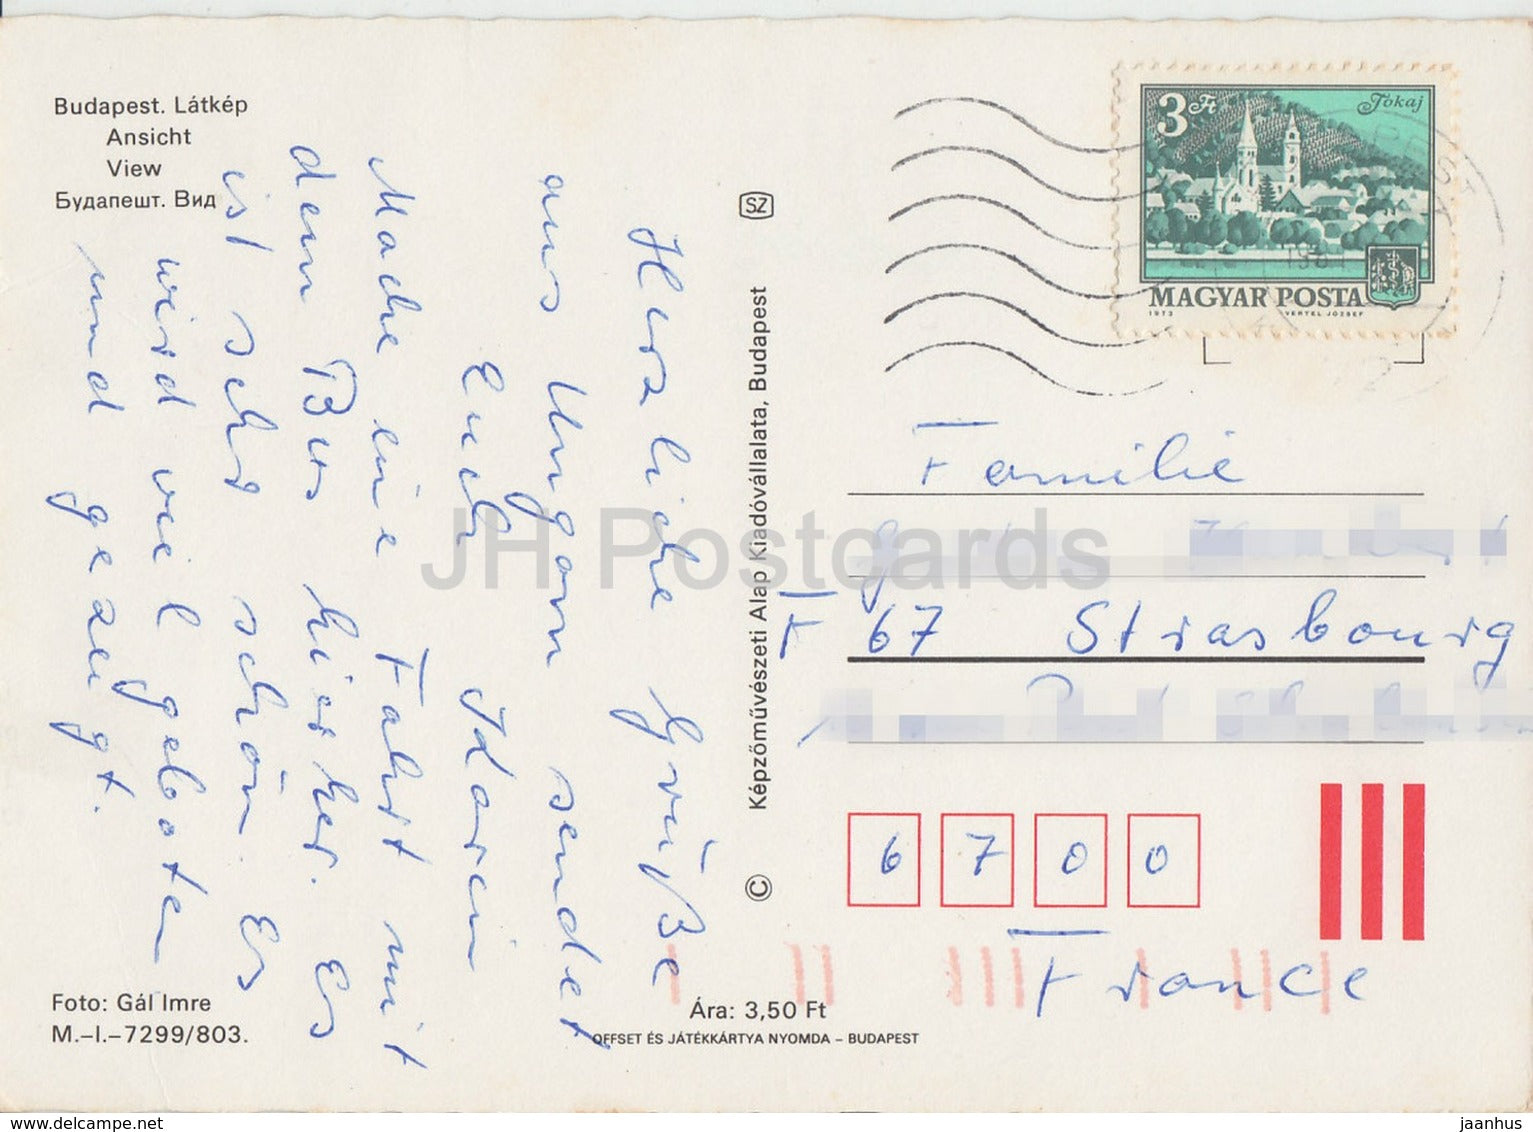 Budapest. Látkép
Ansicht
View
Будапешт. Вид
Herzliche Grüße
aus Ungarn sendet
Euch Karin
Mache eine Fahrt mit
dem Bus hierher. Es
ist sehr schön. Es
wird viel geboten
und gezeigt.
Foto: Gál Imre
M.–I.–7299/803.
Ára: 3,50 Ft
OFFSET ÉS JÁTÉKKÁRTYA NYOMDA – BUDAPEST
SZ
Képzőművészeti Alap Kiadóvállalata, Budapest
©
3 Ft
Tokaj
MAGYAR POSTA
1973 VERTEL JÓZSEF
Familie
F 67 Strasbourg
6 7 0 0
France
JH Postcards
www.delcampe.net
jaanhus